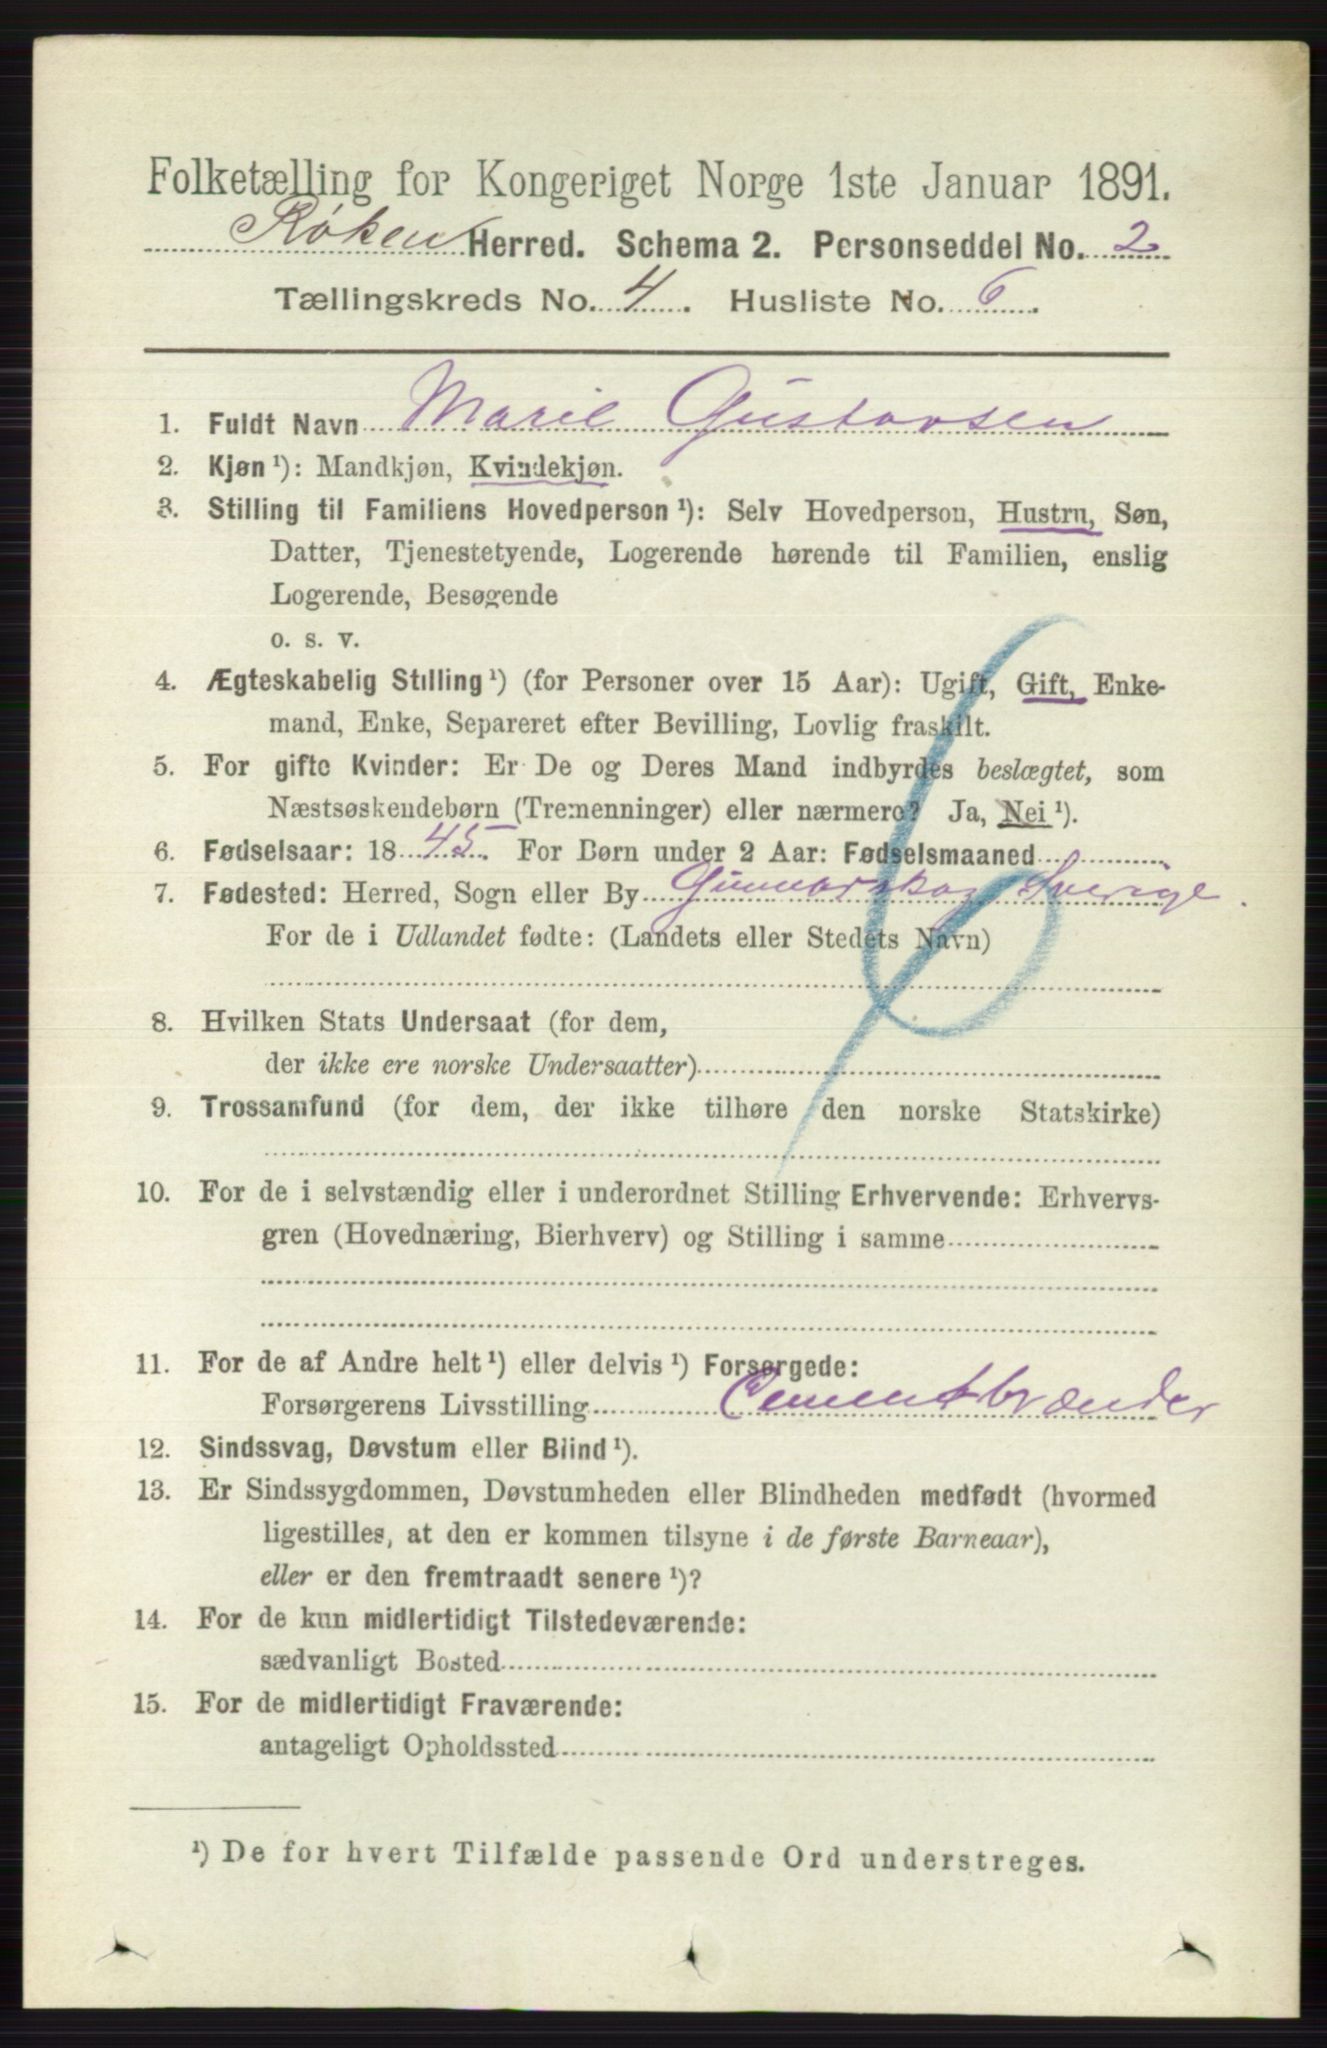 Folketælling for Kongeriget Norge 1ste Januar 1891.
Røken Herred. Schema 2. Personseddel No. 2
Tællingskreds No. 4. Husliste No. 6.
1. Fuldt Navn Marie Gustavsen
2. Kjøn ¹): Mandkjøn, Kvindekjøn.
3. Stilling til Familiens Hovedperson ¹): Selv Hovedperson, Hustru, Søn,
Datter, Tjenestetyende, Logerende hørende til Familien, enslig
Logerende, Besøgende
o. s. v.
4. Ægteskabelig Stilling ¹) (for Personer over 15 Aar): Ugift, Gift, Enke-
mand, Enke, Separeret efter Bevilling, Lovlig fraskilt.
5. For gifte Kvinder: Er De og Deres Mand indbyrdes beslægtet, som
Næstsøskendebørn (Tremenninger) eller nærmere? Ja, Nei ¹).
6. Fødselsaar: 1845. For Børn under 2 Aar: Fødselsmaaned
7. Fødested: Herred, Sogn eller By Gunnarskog Sverige.
For de i Udlandet fødte: (Landets eller Stedets Navn)
8. Hvilken Stats Undersaat (for dem,
der ikke ere norske Undersaatter)
9. Trossamfund (for dem, der ikke tilhøre den norske Statskirke)
10. For de i selvstændig eller i underordnet Stilling Erhvervende: Erhvervs-
gren (Hovednæring, Bierhverv) og Stilling i samme
11. For de af Andre helt ¹) eller delvis ¹) Forsørgede:
Forsørgerens Livsstilling Cementbrænder
12. Sindssvag, Døvstum eller Blind ¹).
13. Er Sindssygdommen, Døvstumheden eller Blindheden medfødt (hvormed
ligestilles, at den er kommen tilsyne i de første Barneaar),
eller er den fremtraadt senere ¹)?
14. For de kun midlertidigt Tilstedeværende:
sædvanligt Bosted
15. For de midlertidigt Fraværende:
antageligt Opholdssted
¹) De for hvert Tilfælde passende Ord understreges.